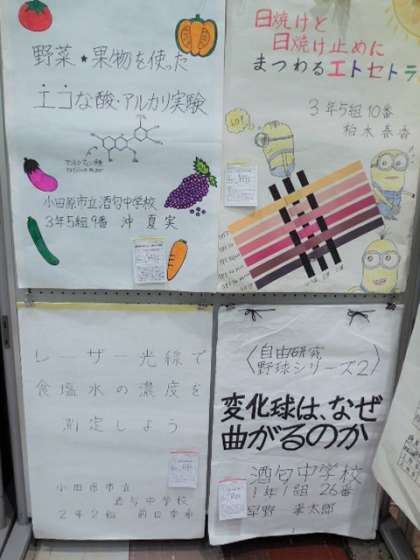 野菜★果物を使った
エコな酸・アルカリ実験
小田原市立酒匂中学校
3年5組9番 沖 夏実
日焼けと
日焼け止めに
まつわるエトセトラ
3年5組10番
柏木春香
レーザー光線で
食塩水の濃度を
測定しよう
小田原市立
酒匂中学校
2年2組
〈自由研究
野球シリーズ2〉
変化球は、なぜ
曲がるのか
酒匂中学校
1年1組 26番
早野 太郎